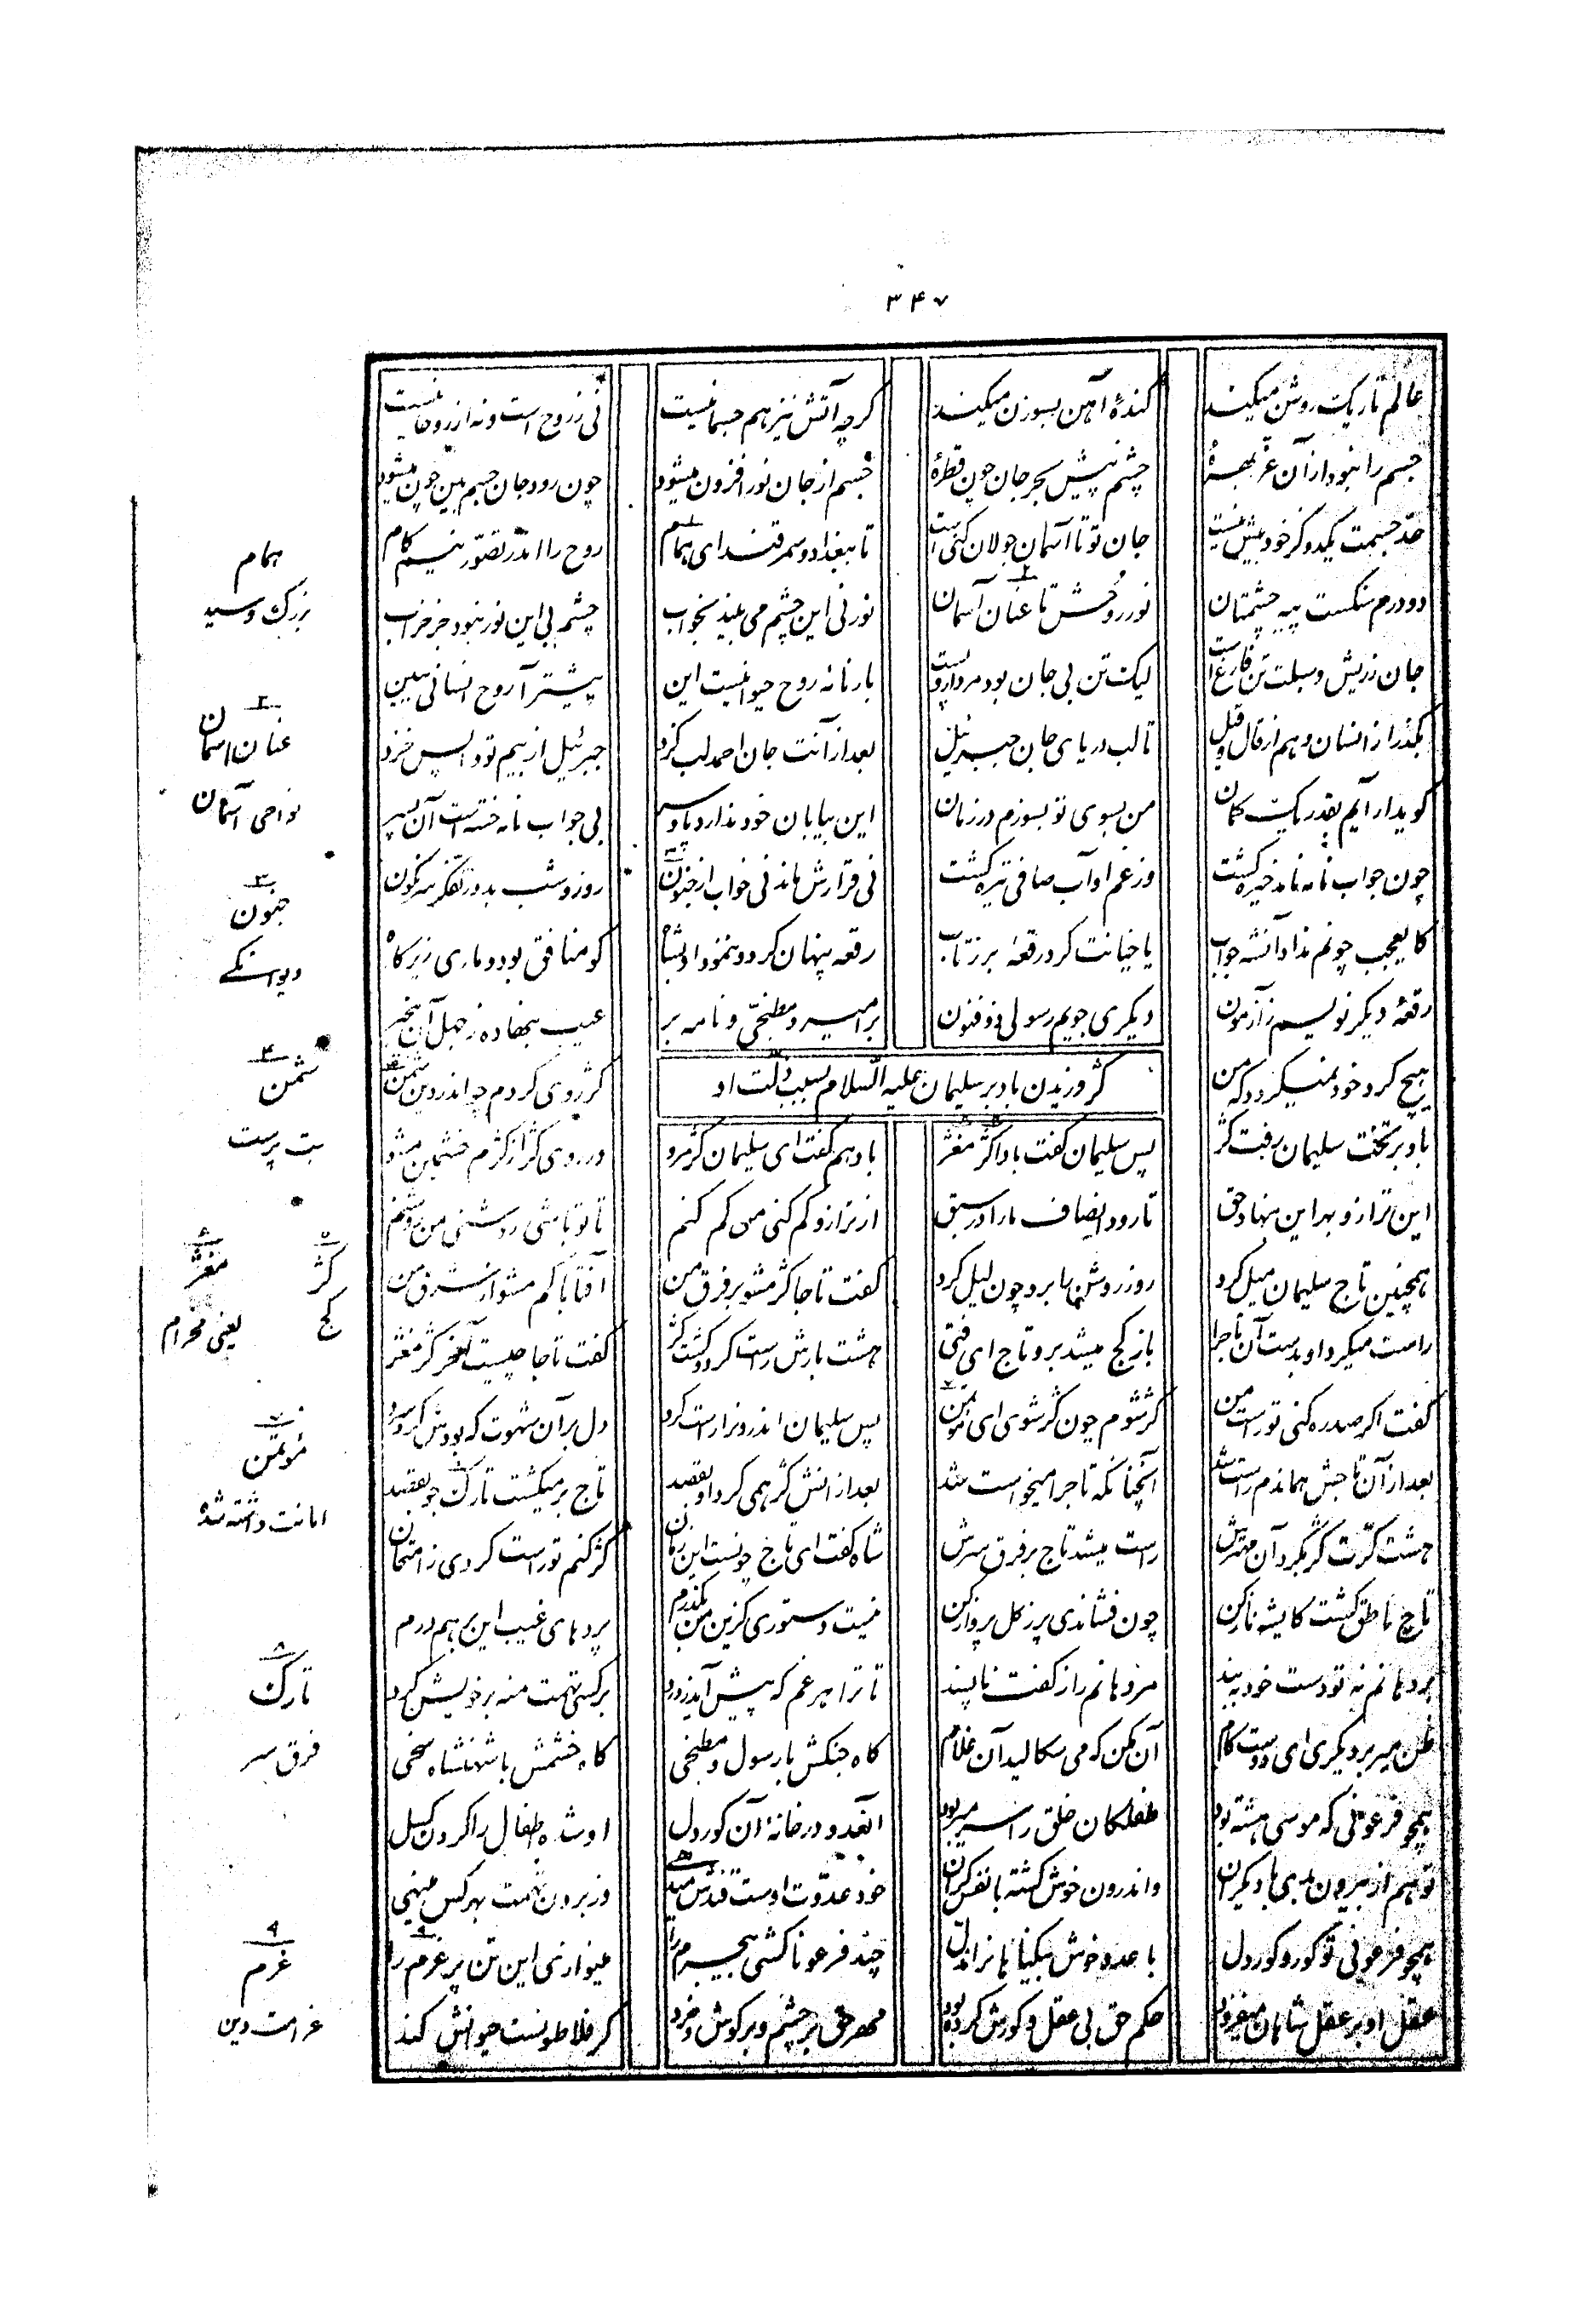 ۳۴۷
عالم تاریک روشن میکند کندهٔ آهن بسوزن میکند گرچه آتش نیز هم جسمانیست نی ز روح است و نه از روحانیست
جسم را نبود از آن عز بهرهٔ جسم پیش بحر جان چون قطرهٔ جسم از جان نور افزون میشود چون رود جان جسم بین چون میشود
حد جسمت یکدو گز خود بیش نیست جان تو تا آسمان جولان کنی است تا ببغداد و سمرقند ای همام روح را اندر تصور نیم گام
دو درم سنگست پیه چشمتان نور روحش تا عنان آسمان نور نی این چشم می بیند بخواب چشم بی این نور نبود جز خراب
جان ز ریش و سبلت تن فارغ است لیک تن بی جان بود مردار و پست بارنامه روح حیوانیست این پیشتر آ روح انسانی ببین
بگذر از انسان و هم از قال و قیل تا لب دریای جان جبرئیل بعد از آنت جان احمد لب گزد جبرئیل از بیم تو واپس خزد
گوید ار آیم بقدر یک کمان من بسوی تو بسوزم در زمان این بیابان خود ندارد پا و سر بی جواب نامه خسته است آن پسر
چون جواب نامه نامد خیره گشت وز غم او آب صافی تیره گشت نی قرارش ماند نی خواب از جنون روز و شب بد در تفکر سرنگون
کایعجب چونم نداد آنشه جواب یا خیانت کرد رقعه بر ز تاب رقعه پنهان کرد و ننمود او بشاه کو منافق بود و ماری زیر کاه
رقعهٔ دیگر نویسم ز آزمون دیگری جویم رسولی ذو فنون بر امیر و مطبخی و نامه بر عیب بنهاده ز جهل آن بیخبر
هیچ گرد خود نمیگردد که من کژ روی کردم چو اندر دین شمن
کژ وزیدن باد بر سلیمان علیه السلام بسبب زلت او
باد بر تخت سلیمان رفت کژ پس سلیمان گفت بادا کژ مغژ باد هم گفت ای سلیمان کژ مرو ور روی کژ از کژم خشمین مشو
این ترازو بهر این بنهاد حق تا رود انصاف ما را در سبق از ترازو کم کنی من کم کنم تا تو با من روشنی من روشنم
همچنین تاج سلیمان میل کرد روز روشن را برو چون لیل کرد گفت تاجا کژ مشو بر فرق من آفتابا کم مشو از شرق من
راست میکرد او بدست آن تاج را باز کج میشد برو تاج ای فتی هشت بارش راست کرد و گشت کژ گفت تاجا چیست آخر کژ مغژ
گفت اگر صد ره کنی تو راست من کژ شوم چون کژ شوی ای مؤتمن پس سلیمان اندرونرا راست کرد دل بر آن شهوت که بودش کرد سرد
بعد از آن تاجش هماندم راست شد آنچنانکه تاج را میخواست شد بعد از آنش کژ همی کرد او بقصد تاج بر میگشت تارک جو بقصد
هشت کرت کژ بکرد آن مهترش راست میشد تاج بر فرق سرش شاه گفت ای تاج چونست این زمان کژ کنم تو راست کردی ز امتحان
تاج ناطق گشت کایشه ناز کن چون فشاندی پر ز گل پرواز کن نیست دستوری کزین من بگذرم پردهای غیب این بر هم درم
بر دهانم نه تو دست خود ببند مر دهانم را ز گفت ناپسند تا ترا هر غم که پیش آید ز درد بر کسی تهمت منه بر خویش گرد
ظن مبر بر دیگری ای دوست کام آن مکن که می سگالید آن غلام گاه جنگش با رسول و مطبخی گاه خشمش با شهنشاه سخی
همچو فرعونی که موسی هشته بود طفلکان خلق را سر میربود آنعدو در خانهٔ آن کور دل او شده اطفال را گردن گسل
تو هم از بیرون بدی با دیگران و اندرون خوش گشته با نفس گران خود عدوت اوست قندش میدهی وز برون تهمت بهر کس مینهی
همچو فرعونی تو کور و کور دل با عدو خوش بیگناهانرا مذل چند فرعونا کشی بیجرم را مینوازی این تن پر غرم را
عقل او بر عقل شاهان میفزود حکم حق بی عقل و کورش کرده بود مهر حق بر چشم و بر گوش و خرد گر فلاطونست حیوانش کند
همام
بزرک و سید
۲
عنان آسمان
نواحی آسمان
۳
جنون
دیوانگی
۴
شمن
بت پرست
۵
کژ
کج
۶
مغژ
یعنی مخرام
۷
مؤتمن
امانت داشته شده
۸
تارک
فرق سر
۹
غرم
غرامت دین